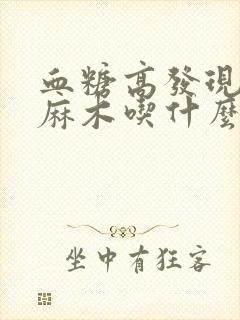 血糖高發現
麻木喫什麼
坐中有狂客